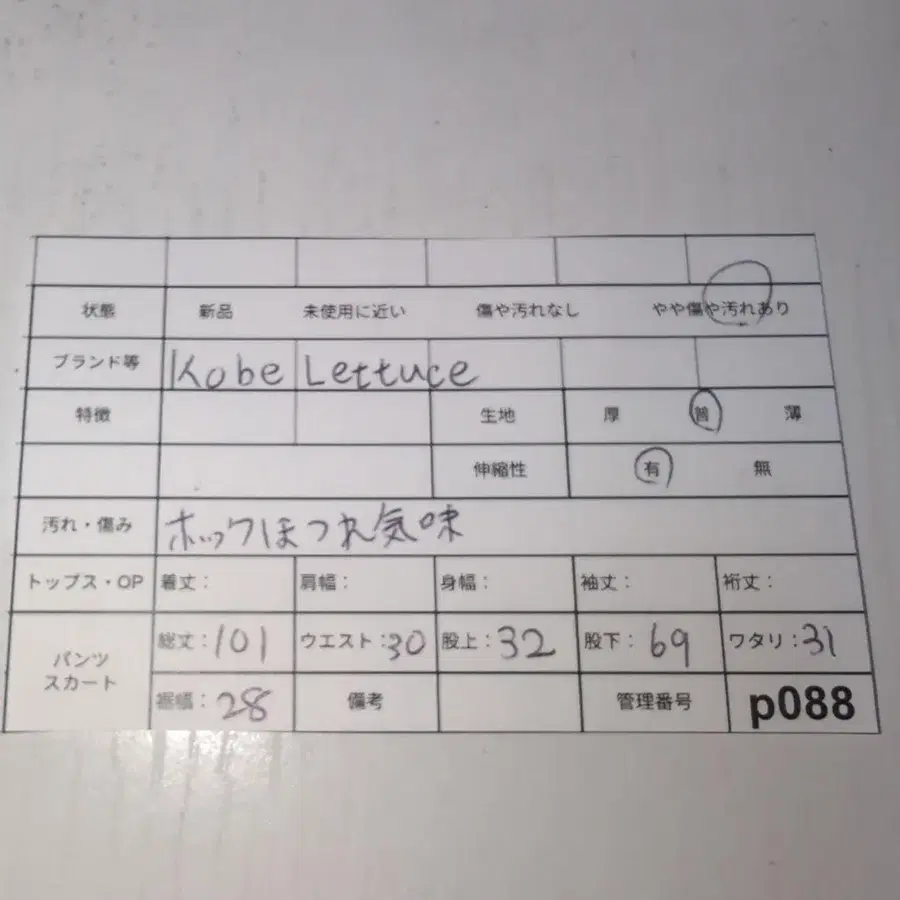 状態 新品 未使用に近い 傷や汚れなし やや傷や汚れあり
ブランド等 Kobe Lettuce
特徴 生地 厚 普 薄
伸縮性 有 無
汚れ・傷み ホックほつれ気味
トップス・OP 着丈: 肩幅: 身幅: 袖丈: 裄丈:
パンツ スカート 総丈:101 ウエスト:30 股上:32 股下:69 ワタリ:31
裾幅:28 備考 管理番号 p088